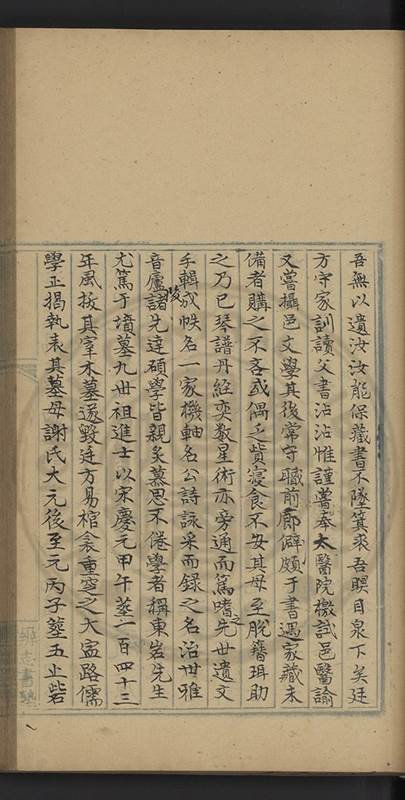 吾無以遺汝汝能保藏書不墜箕裘吾瞑目泉下矣廷
方守家訓讀父書沾沾惟謹嘗奉太醫院檄試邑醫諭
又嘗攝邑文學其後常守職前廊僻頗于書遇家藏未
備者購之不吝或偶乏貲寢食不安其母至脫簪珥助
之乃已琴譜丹經奕數星術亦旁通而篤嗜之先世遺文
手輯成帙名一家機軸名公詩詠采而錄之名治世雅
音廬陵諸先達碩學皆親炙慕思不倦學者稱東岩先生
尤篤于墳墓九世祖進士以宋慶元甲午塟二百四十三
年風拔其宰木墓遂毀廷方易棺衾重窆之大寍路儒
學正揭執表其墓母謝氏大元後至元丙子塟五止砦